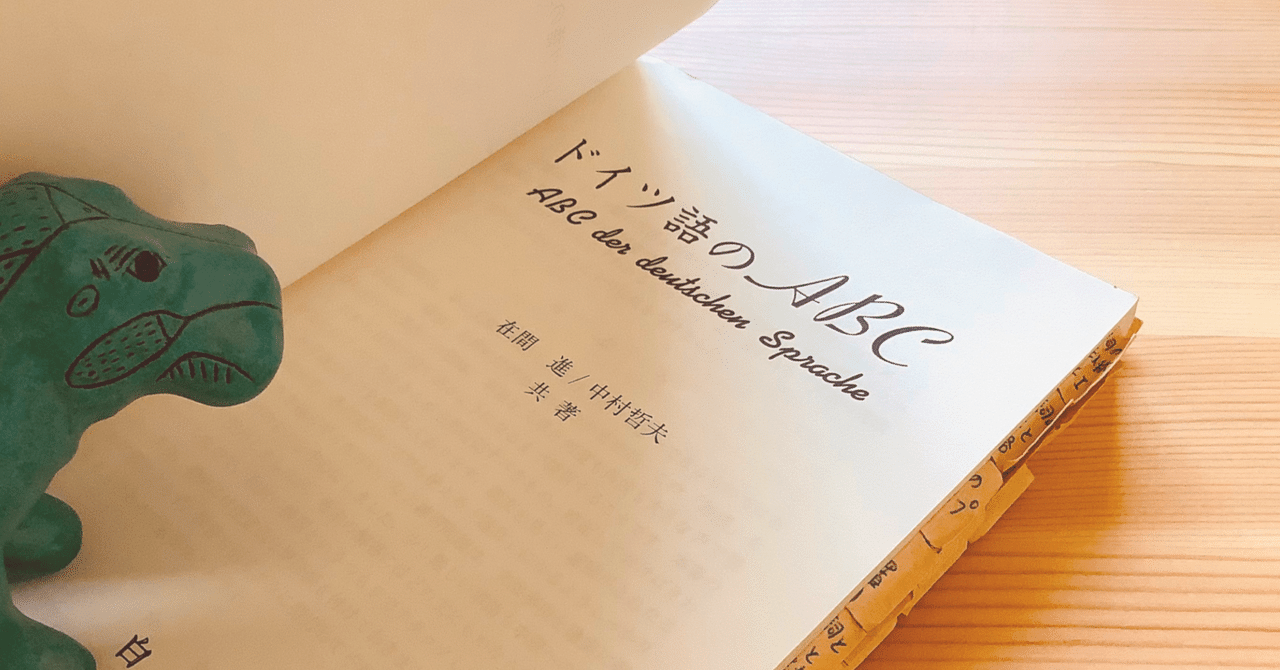 ドイツ語のABC
ABC der deutschen Sprache
在間 進/中村哲夫
共著
白